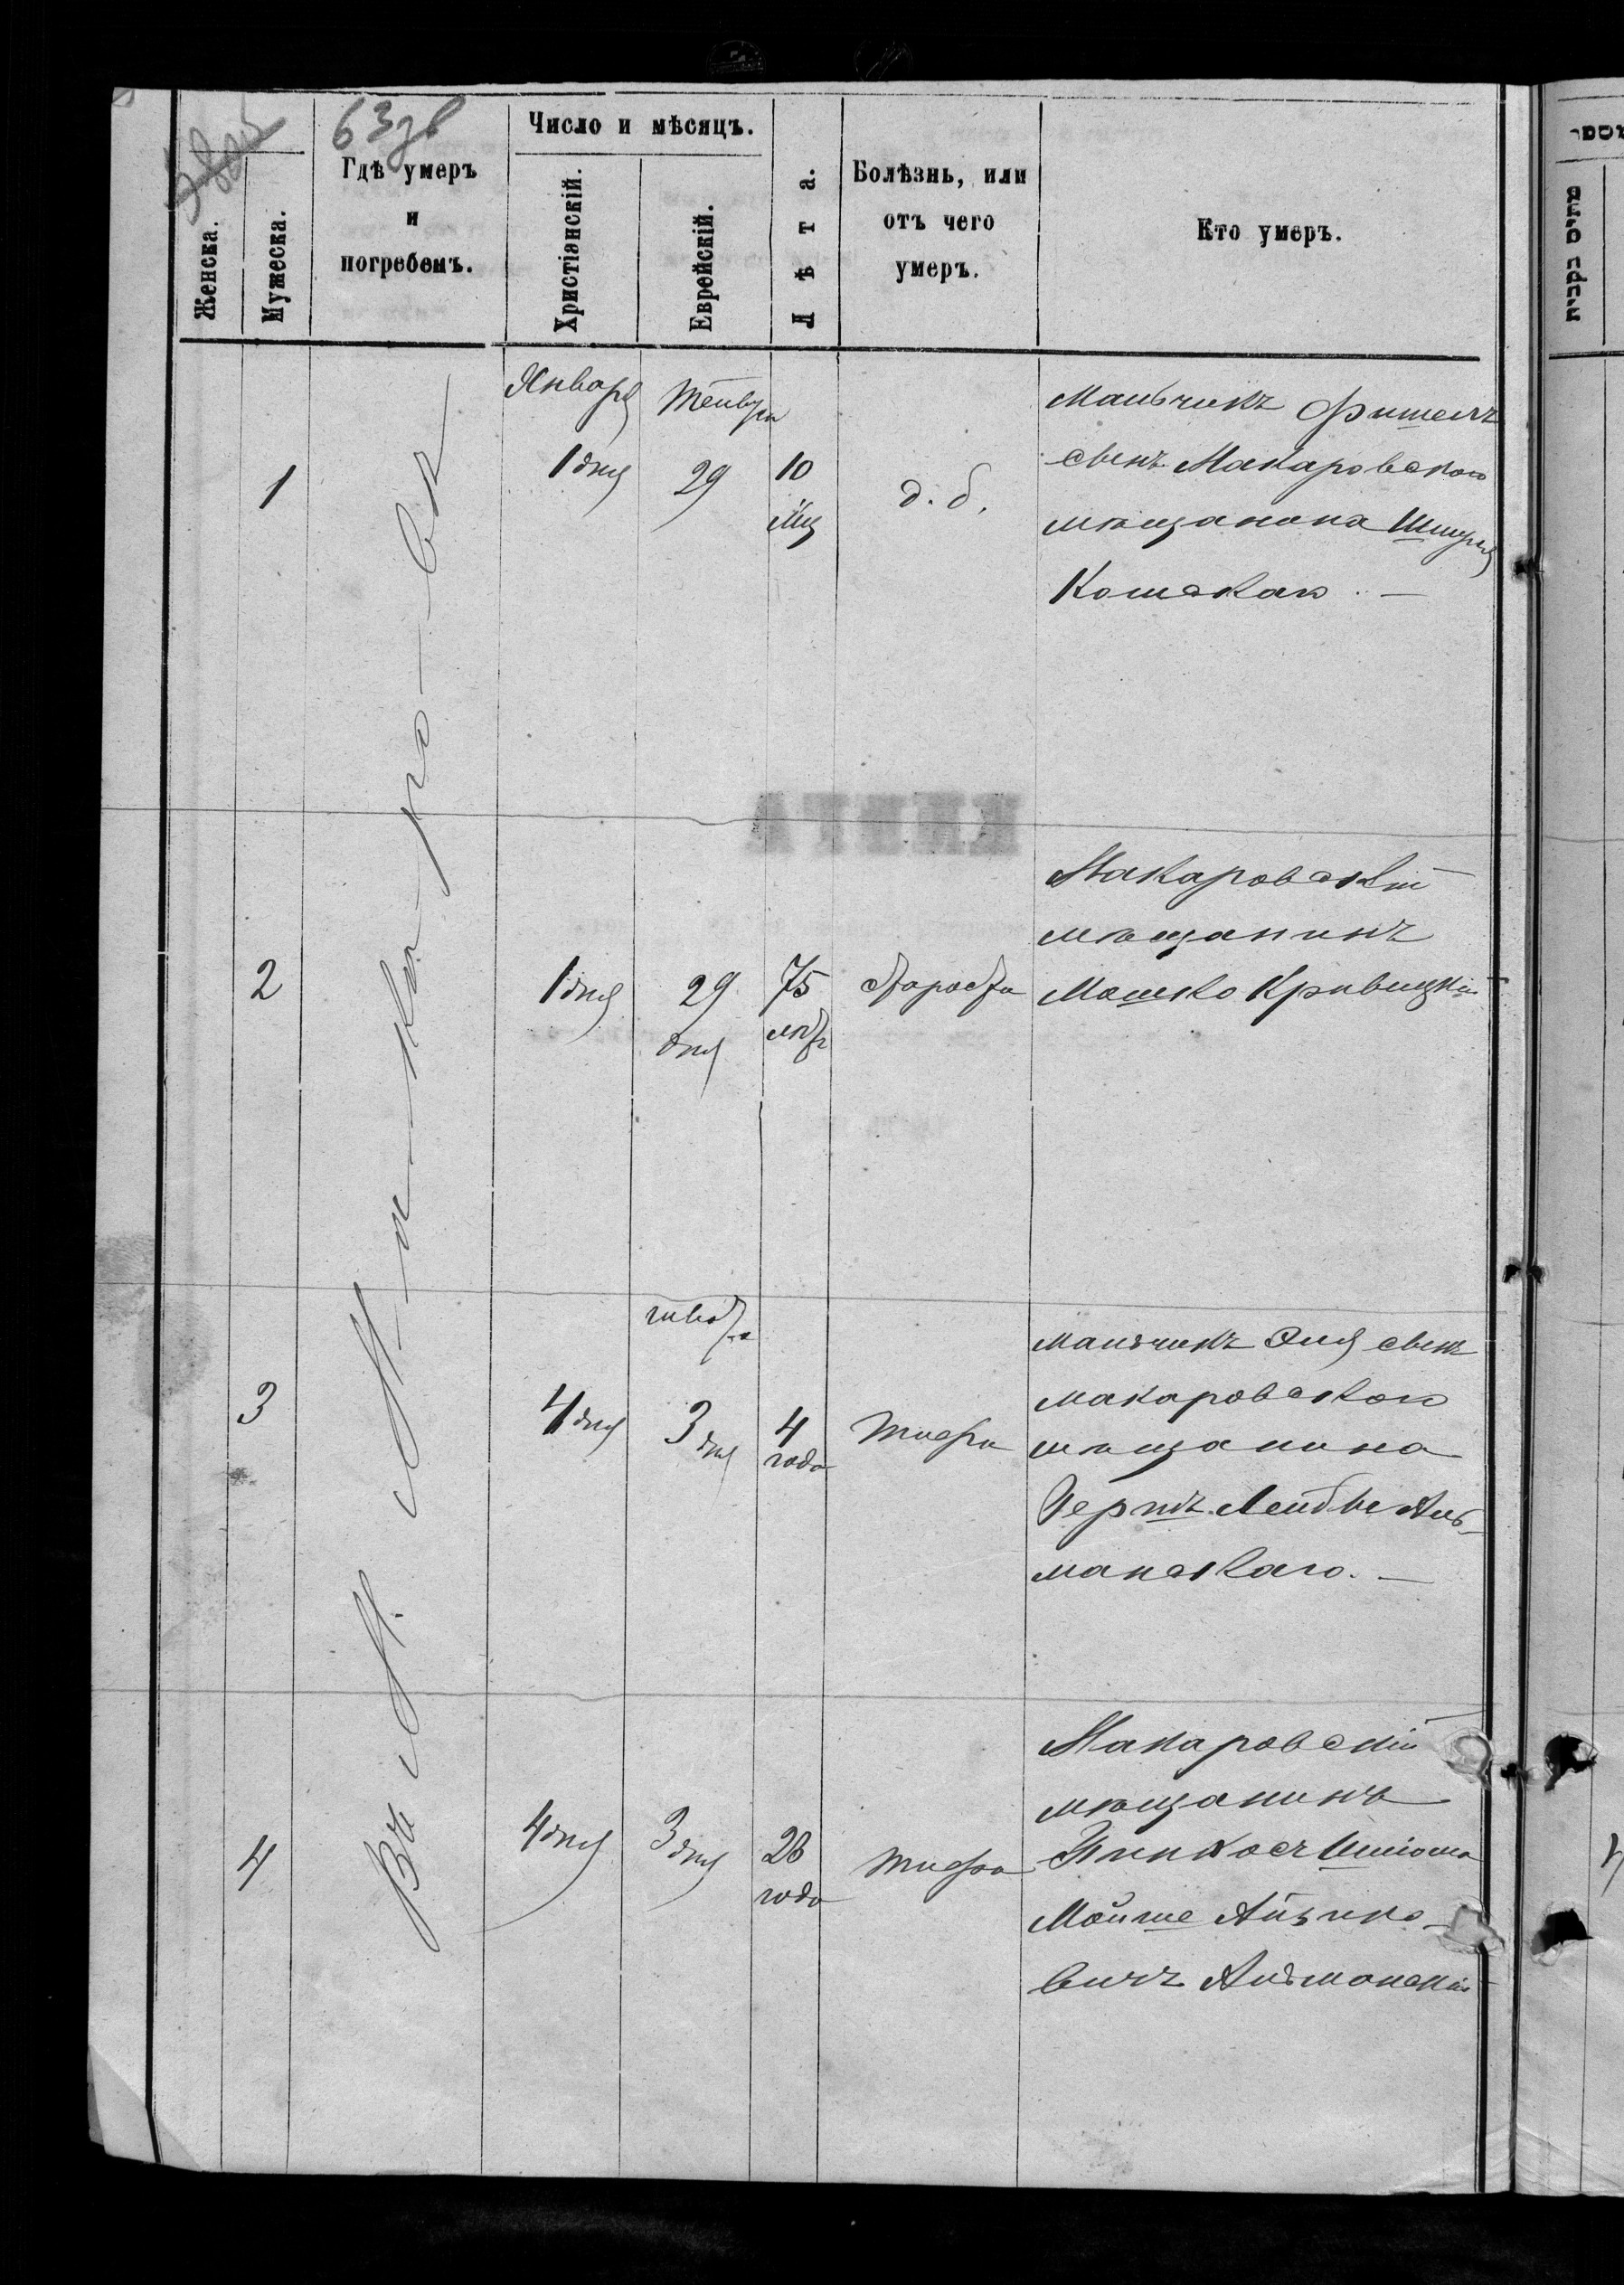 63 зв
Женска.
Мужеска.
Гдѣ умеръ
и
погребенъ.
Число и мѣсяцъ.
Христіанскій.
Еврейскій.
Лѣта.
Болѣзнь, или
отъ чего
умеръ.
Кто умеръ.
Въ М. М-а-ка-ро-вѣ
1
Января
1 дня
29
10
мц
д. б.
Мальчикъ Фишель
сынъ Макаровского
мѣщанина Шмуля
2
1 дня
29
дня
75
лѣтъ
старости
Макаровскій
мѣщанинъ
Мошко Кривицкій
3
4 дня
3 дня
4
года
тифа
мальчикъ Эля сынъ
макаровского
мѣщанина
Герша Лейбы Аль-
манскаго. —
4
4 дня
3 дня
28
года
тифа
Макаровскій
мѣщанинъ
Пинхосъ
Мойше Айзико-
вичъ Альманскій
КНИГА